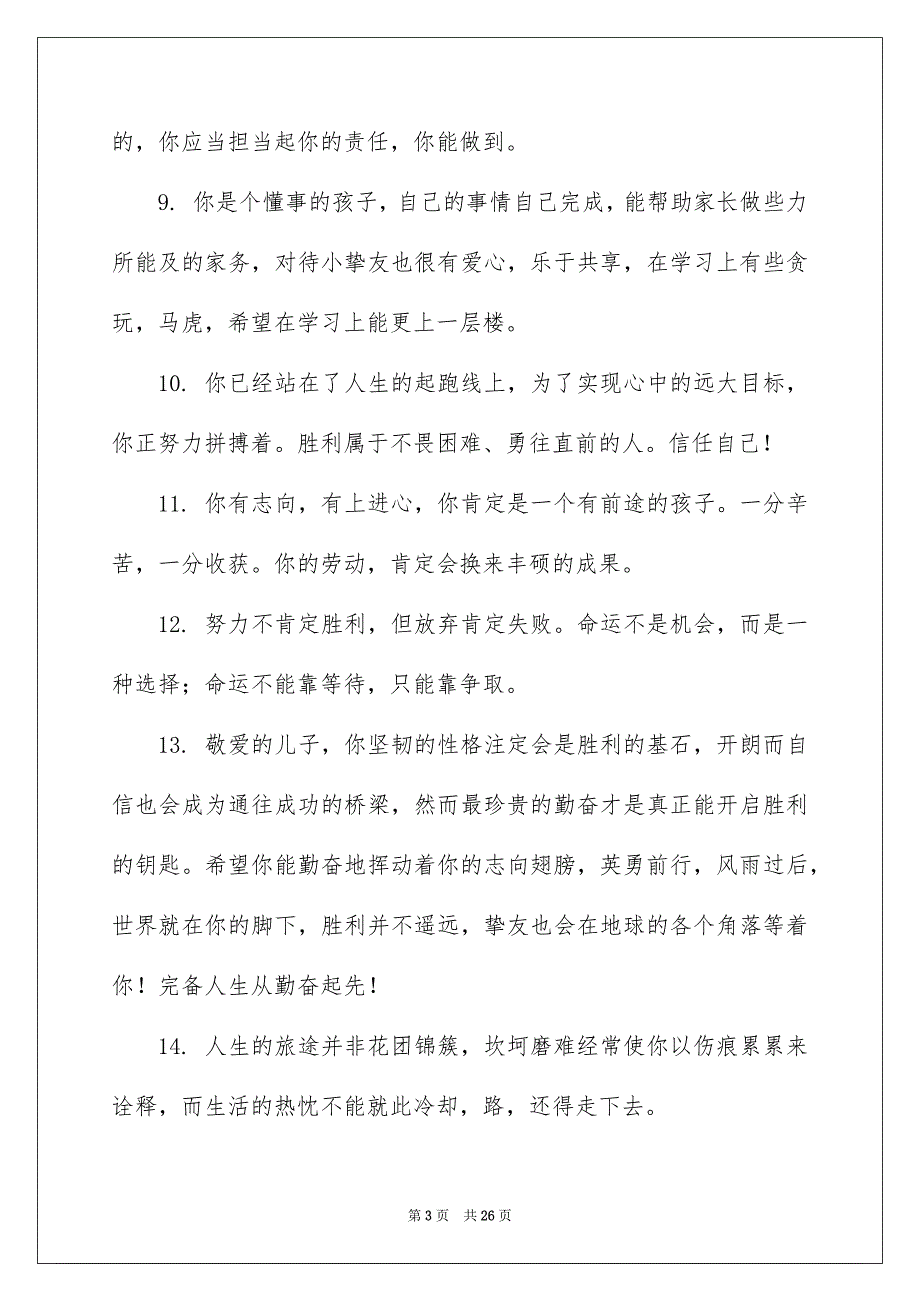 的，你应当担当起你的责任，你能做到。
9. 你是个懂事的孩子，自己的事情自己完成，能帮助家长做些力
所能及的家务，对待小挚友也很有爱心，乐于共享，在学习上有些贪
玩，马虎，希望在学习上能更上一层楼。
10. 你已经站在了人生的起跑线上，为了实现心中的远大目标，
你正努力拼搏着。胜利属于不畏困难、勇往直前的人。信任自己！
11. 你有志向，有上进心，你肯定是一个有前途的孩子。一分辛
苦，一分收获。你的劳动，肯定会换来丰硕的成果。
12. 努力不肯定胜利，但放弃肯定失败。命运不是机会，而是一
种选择；命运不能靠等待，只能靠争取。
13. 敬爱的儿子，你坚韧的性格注定会是胜利的基石，开朗而自
信也会成为通往成功的桥梁，然而最珍贵的勤奋才是真正能开启胜利
的钥匙。希望你能勤奋地挥动着你的志向翅膀，英勇前行，风雨过后，
世界就在你的脚下，胜利并不遥远，挚友也会在地球的各个角落等着
你！完备人生从勤奋起先！
14. 人生的旅途并非花团锦簇，坎坷磨难经常使你以伤痕累累来
诠释，而生活的热忱不能就此冷却，路，还得走下去。
第 3 页 共 26 页